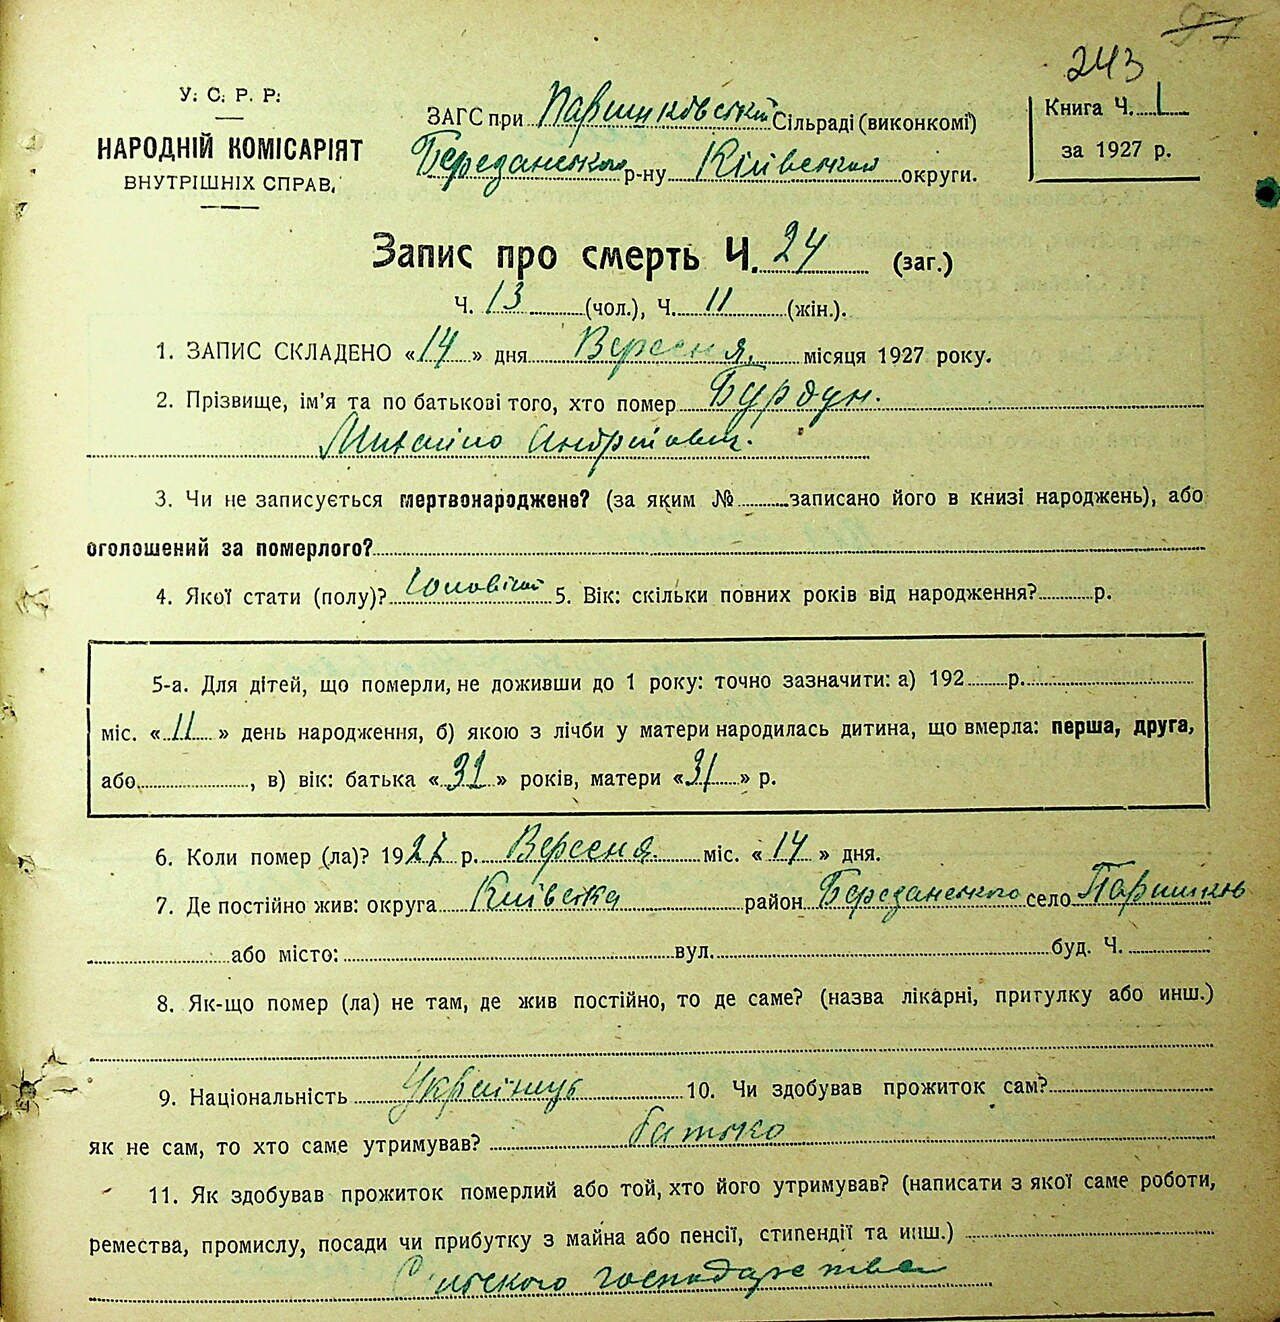 97
243
У. С. Р. Р.
НАРОДНІЙ КОМІСАРІЯТ
ВНУТРІШНІХ СПРАВ.
ЗАГС при Паришковській Сільраді (виконкомі)
Березанського р-ну Київської округи.
Книга Ч. 1
за 1927 р.
Запис про смерть Ч. 24 (заг.)
Ч. 13 (чол.), Ч. 11 (жін.).
1. ЗАПИС СКЛАДЕНО «14» дня Вересня місяця 1927 року.
2. Прізвище, ім'я та по батькові того, хто помер Бурдун.
Михайло Андрійович.
3. Чи не записується мертвонароджене? (за яким № записано його в книзі народжень), або
оголошений за померлого?
4. Якої стати (полу)? Чоловічої 5. Вік: скільки повних років від народження? р.
5-а. Для дітей, що померли, не доживши до 1 року: точно зазначити: а) 192 р.
міс. «11» день народження, б) якою з лічби у матери народилась дитина, що вмерла: перша, друга,
або , в) вік: батька «31» років, матери «31» р.
6. Коли помер (ла)? 1927 р. Вересня міс. «14» дня.
7. Де постійно жив: округа Київська район Березанського село Паришків
або місто: вул. буд. Ч.
8. Як-що помер (ла) не там, де жив постійно, то де саме? (назва лікарні, притулку або инш.)
9. Національність Українець 10. Чи здобував прожиток сам?
як не сам, то хто саме утримував? батько
11. Як здобував прожиток померлий або той, хто його утримував? (написати з якої саме роботи,
ремества, промислу, посади чи прибутку з майна або пенсії, стипендії та инш.)
Сільского господарства